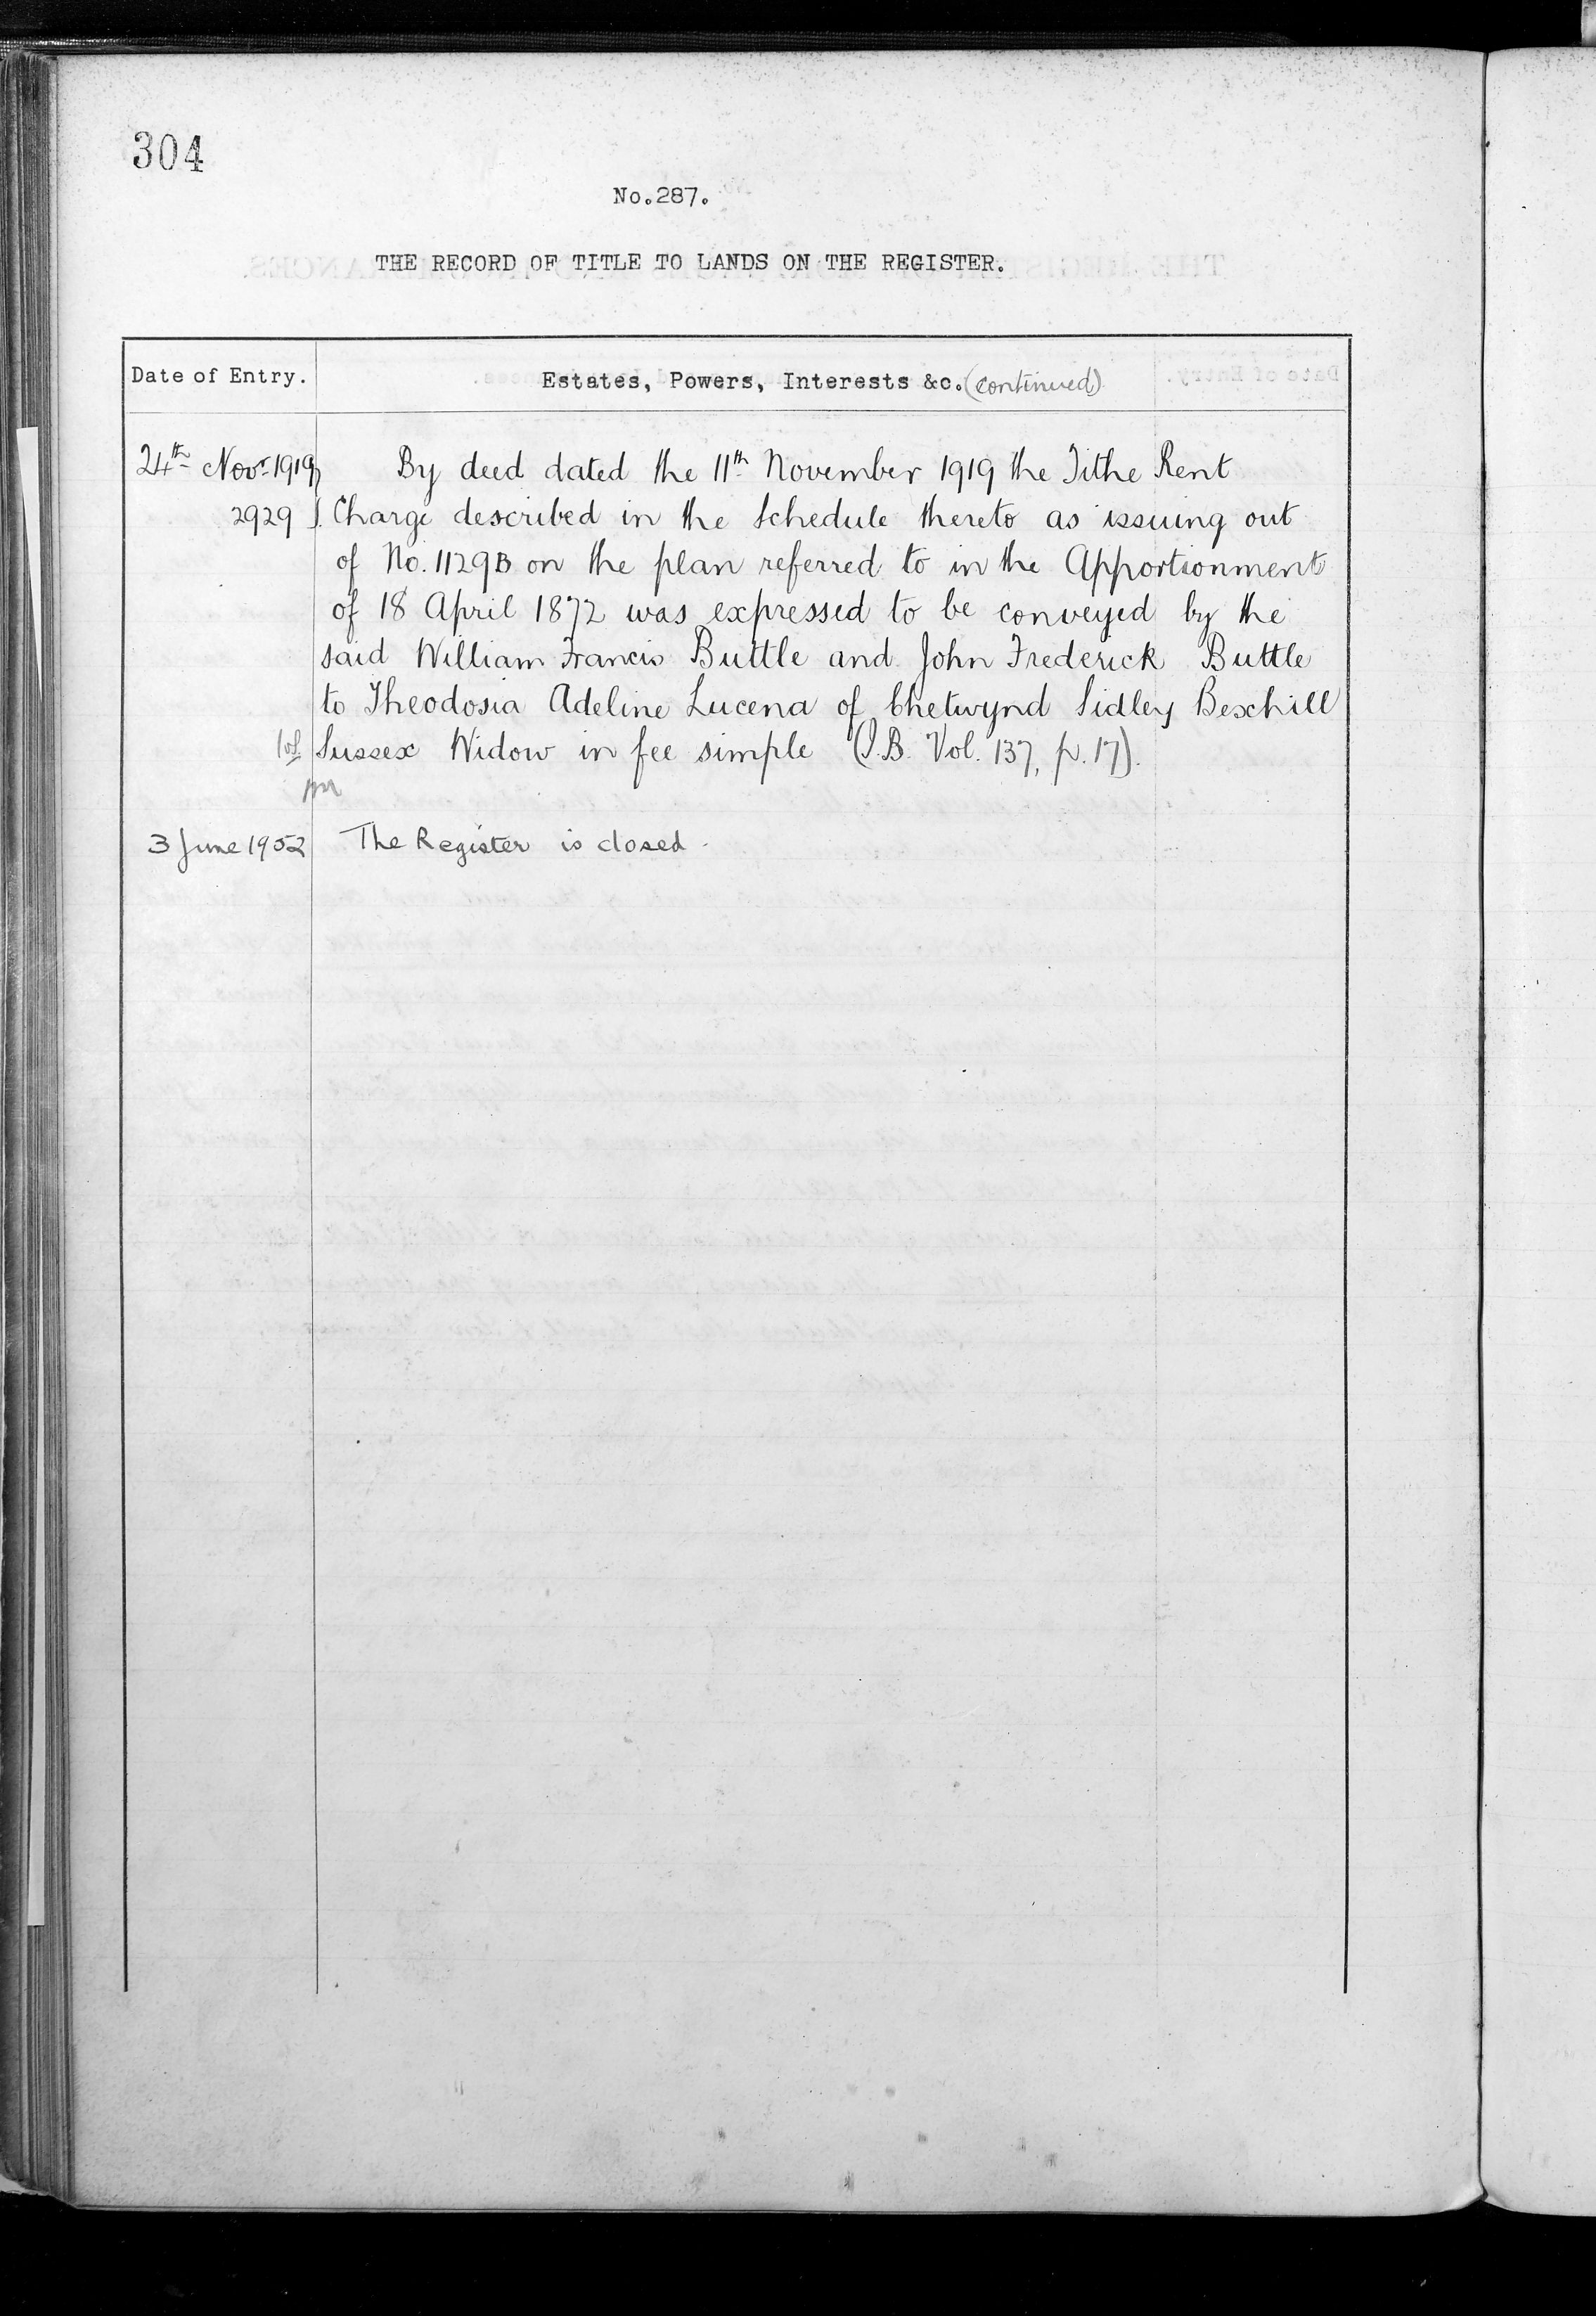 304
No.287.
THE RECORD OF TITLE TO LANDS ON THE REGISTER.
Date of Entry.
Estates, Powers, Interests &c. (continued)
24th Novr 1919
2929
By deed dated the 11th November 1919 the Tithe Rent
Charge described in the Schedule thereto as issuing out
of No. 1129B on the plan referred to in the Apportionment
of 18 April 1872 was expressed to be conveyed by the
said William Francis Buttle and John Frederick Buttle
to Theodosia Adeline Lucena of Chetwynd Sidley Bexhill
Sussex Widow in fee simple (I.B. Vol. 137, p. 17).
3 June 1952 The Register is closed.